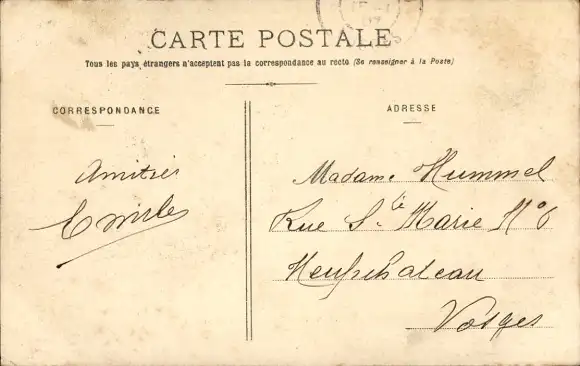 CARTE POSTALE
Tous les pays étrangers n'acceptent pas la correspondance au recto (Se renseigner à la Poste)
CORRESPONDANCE
Amitiés
Emile
ADRESSE
Madame Hummel
Rue Ste Marie No 6
Neufchateau
Vosges